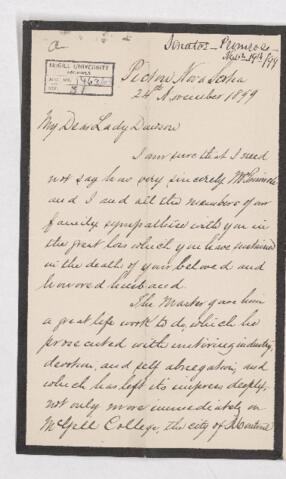 a
Senator Primrose
Nov 24th/99
McGILL UNIVERSITY
ARCHIVES
ACC. NO.
REF.
Pictou, Nova Scotia
24th November 1899
My Dear Lady Dawson
I am sure that I need
not say how very sincerely Mrs Primrose
and I and all the members of our
family sympathise with you in
the great loss which you have sustained
in the death of your beloved and
honored husband.
The Master gave him
a great life work to do, which he
prosecuted with untiring industry,
devotion, and self abnegation, and
which has left its impress deeply,
not only more immediately on
McGill College, the city of Montreal